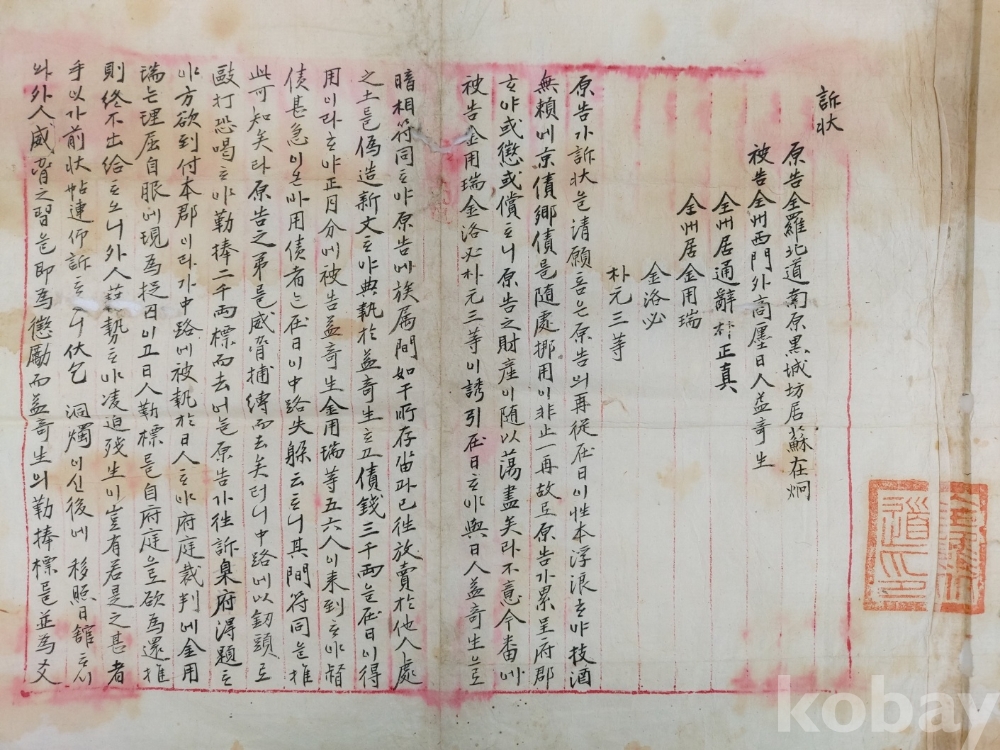 訴狀
原告全羅北道南原黑城坊居蘇在炯
被告全州西門外商廛日人益奇生
全州居通辭朴正真
全州居金用瑞
金洛必
朴元三等
原告가訴狀은淸願音은原告의再從在日이性本浮浪하야技酒
無賴에京債鄕債를隨處挪用이非止一再故로原告가累呈府郡
하야或懲或償하니原告之財産이隨以蕩盡矣라不意今番에
被告金用瑞金洛必朴元三等이誘引在日하야與日人益奇生으로
暗相符同하야原告에族属間如干所存畓과已徃放賣於他人處
之土를僞造新文하야典執於益奇生하고債錢三千兩을在日이得
用이라하야正月分에被告益奇生金用瑞等五六人이来到하야督
債甚急이온바用債者는在日이中路失躱云하니其間符同을推
此可知矣라原告之弟를威脅捕縛而去矣더니中路에以釰頭로
毆打恐喝하야勒捧二千兩標而去어늘原告가徃訴臬府得題하
야方欲到付本郡이라가中路에被執於日人하야府庭裁判에金用
瑞는理屈自服에現為捉囚이고日人勒標를自府庭으로欲為還推
則終不出給하오니外人藉勢하야凌迫残生이豈有若是之甚者
乎以가前狀帖連仰訴하니伏乞 洞燭이신後에 移照日舘하시
와外人威脅之習을即為懲勵而益奇生의勒捧標를並為爻
kobay